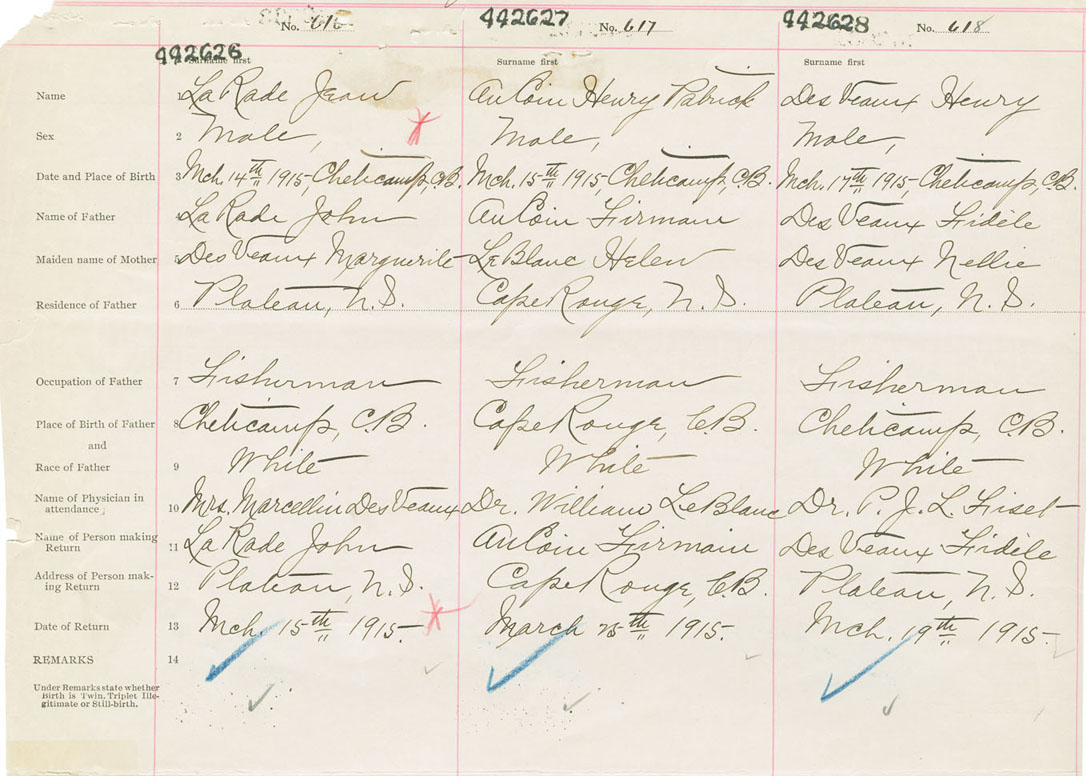 442626 No. 616 442627 No. 617 442628 No. 618
Surname first Surname first Surname first
Name 1 LaRade Jean AuCoin Henry Patrick DesVeaux Henry
Sex 2 Male, Male, Male,
Date and Place of Birth 3 Mch. 14th 1915, Cheticamp, C.B. Mch. 15th 1915, Cheticamp, C.B. Mch. 17th 1915, Cheticamp, C.B.
Name of Father 4 LaRade John AuCoin Firmain DesVeaux Fidèle
Maiden name of Mother 5 DesVeaux Marguerite LeBlanc Helen DesVeaux Nellie
Residence of Father 6 Plateau, N.S. Cape Rouge, N.S. Plateau, N.S.
Occupation of Father 7 Fisherman Fisherman Fisherman
Place of Birth of Father 8 Cheticamp, C.B. Cape Rouge, C.B. Cheticamp, C.B.
and
Race of Father 9 White White White
Name of Physician in
attendance 10 Mrs. Marcellin DesVeaux Dr. William LeBlanc Dr. P. J. L. Fiset
Name of Person making
Return 11 LaRade John AuCoin Firmain DesVeaux Fidèle
Address of Person mak-
ing Return 12 Plateau, N.S. Cape Rouge, C.B. Plateau, N.S.
Date of Return 13 Mch. 15th 1915. March 25th 1915. Mch. 19th 1915.
REMARKS 14
Under Remarks state whether
Birth is Twin, Triplet Ille-
gitimate or Still-birth.